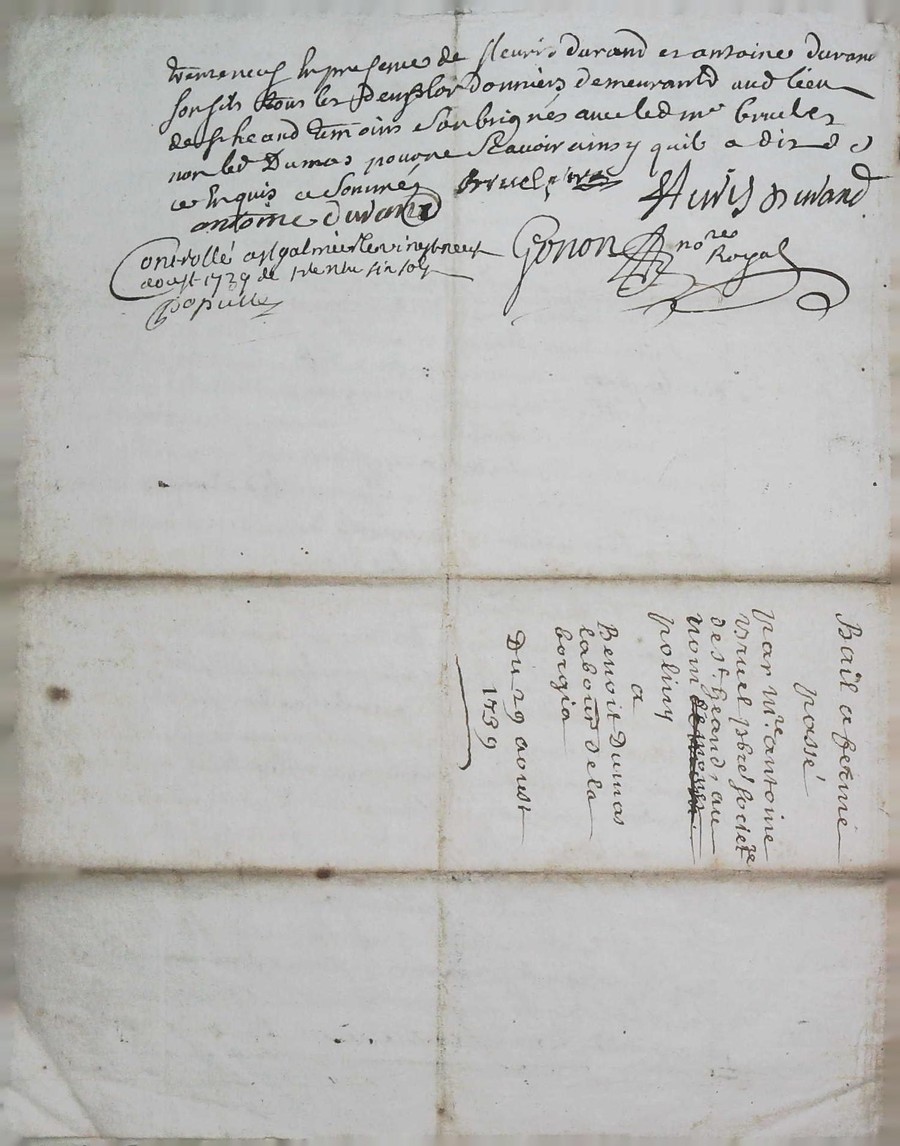 presence de fleuris durand et antoine durand
son fils tous les deux Cordonniers demeurant aud lieu
de st heand temoins soubsignés avec led mre bruel et
non led Dumas pour ne scavoir ainsy qu'il a dit d
ce Enquis et sommé bruel ptre fleuris Durand
antoine durand
Controllé a st galmier le vingt neuf Gonon nore Royal
aoust 1739
Bail a fermé
passé
par Mre antoine
bruel pbre societre
de st heand au
nom
poliny
a
Benoit Dumas
labour de la
borgia
Du 29 aoust
1739